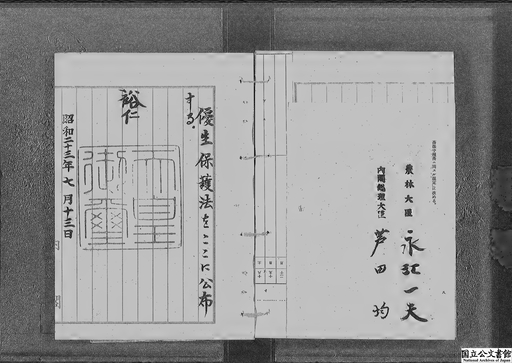 優生保護法をここに公布
する。
裕仁
天皇
御璽
昭和二十三年七月十三日
農林大臣
永江一夫
内閣総理大臣
芦田均
国立公文書館
National Archives of Japan